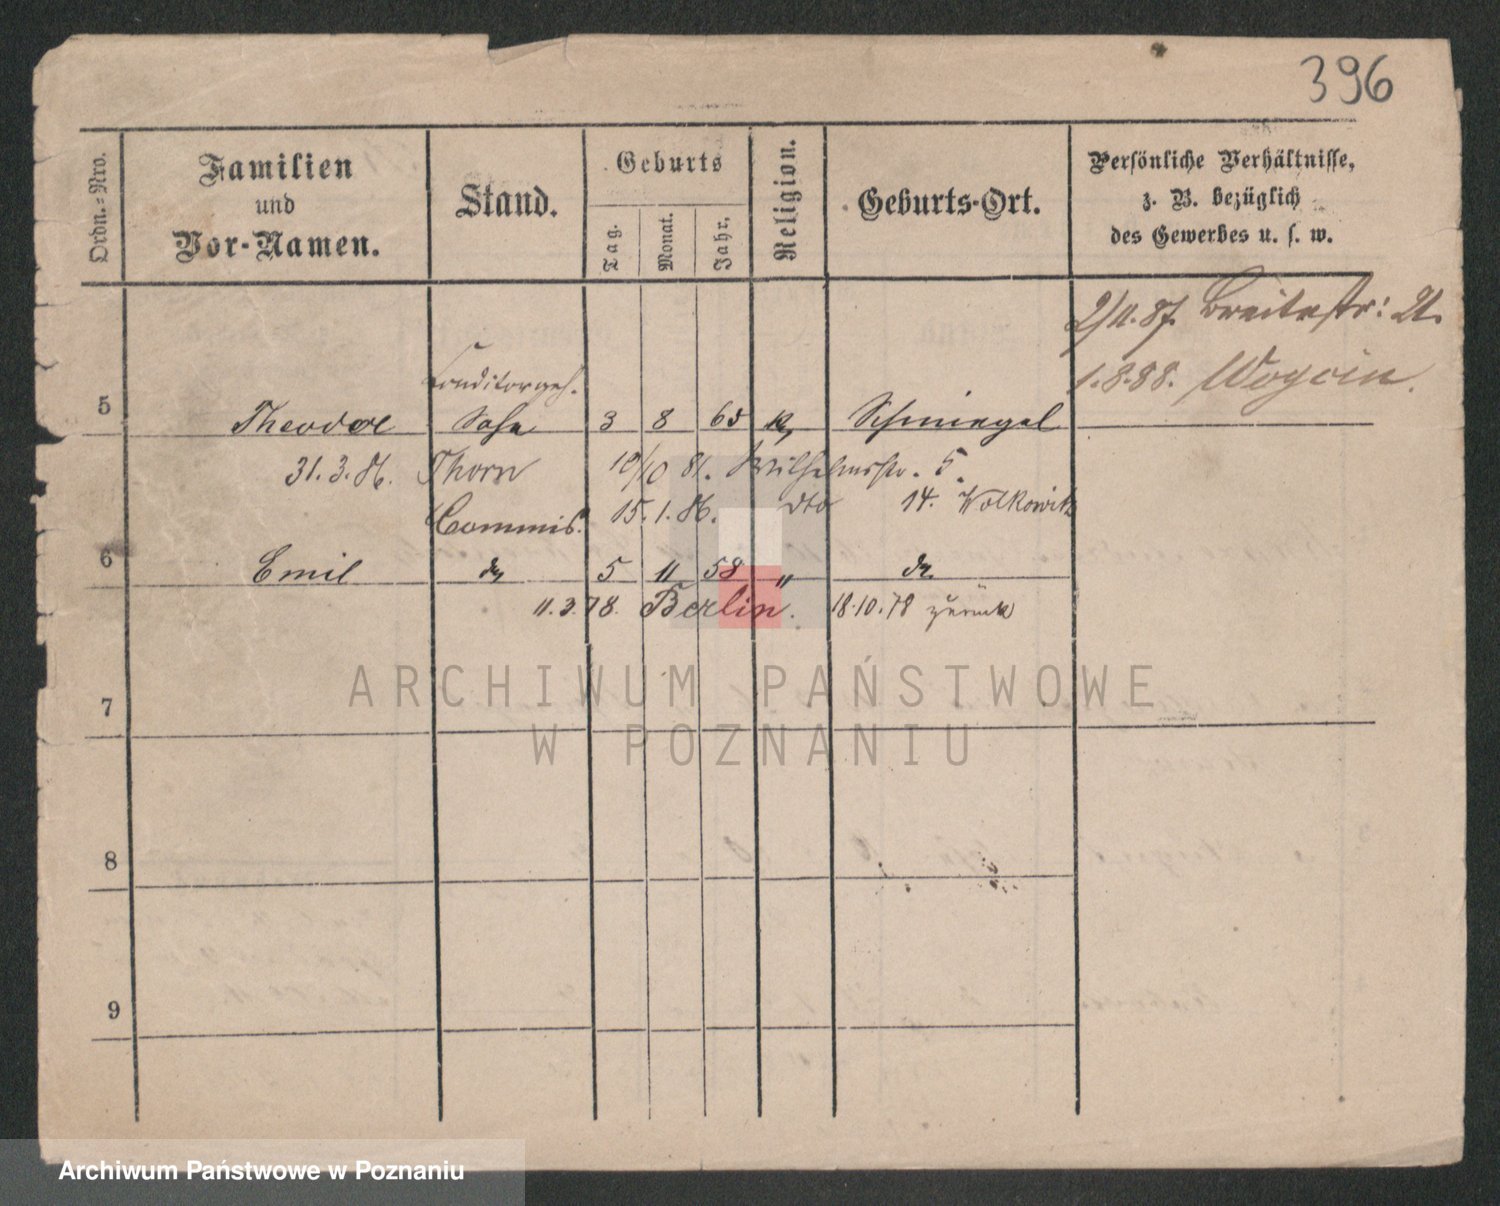 396
Ordn.-Nro.
Familien
und
Vor-Namen.
Stand.
Geburts
Tag.
Monat.
Jahr.
Religion.
Geburts-Ort.
Persönliche Verhältnisse,
z. B. bezüglich
des Gewerbes u. s. w.
2/11.87. Breitestr: 21.
1.8.88.
Conditorgeh.
5 Theodor Sohn 3 8 65 k Schmiegel
31.3.86. Thorn 10/10 81. Wilhelmsstr. 5.
Commis. 15.1.86. dto 14. Wolkowitz
6 Emil do 5 11 58 " do
11.3.78. Berlin. 18.10.78 zurück
7
8
9
ARCHIWUM PAŃSTWOWE
W POZNANIU
Archiwum Państwowe w Poznaniu